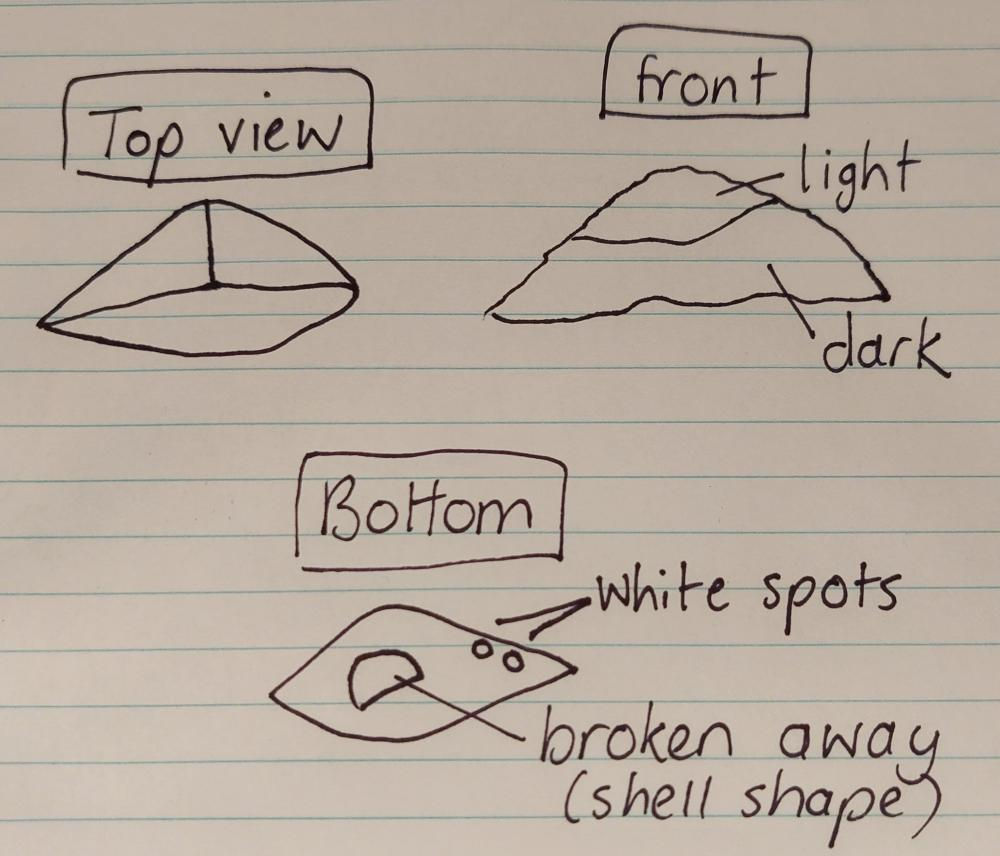 Top view
front
light
dark
Bottom
white spots
broken away
(shell shape)